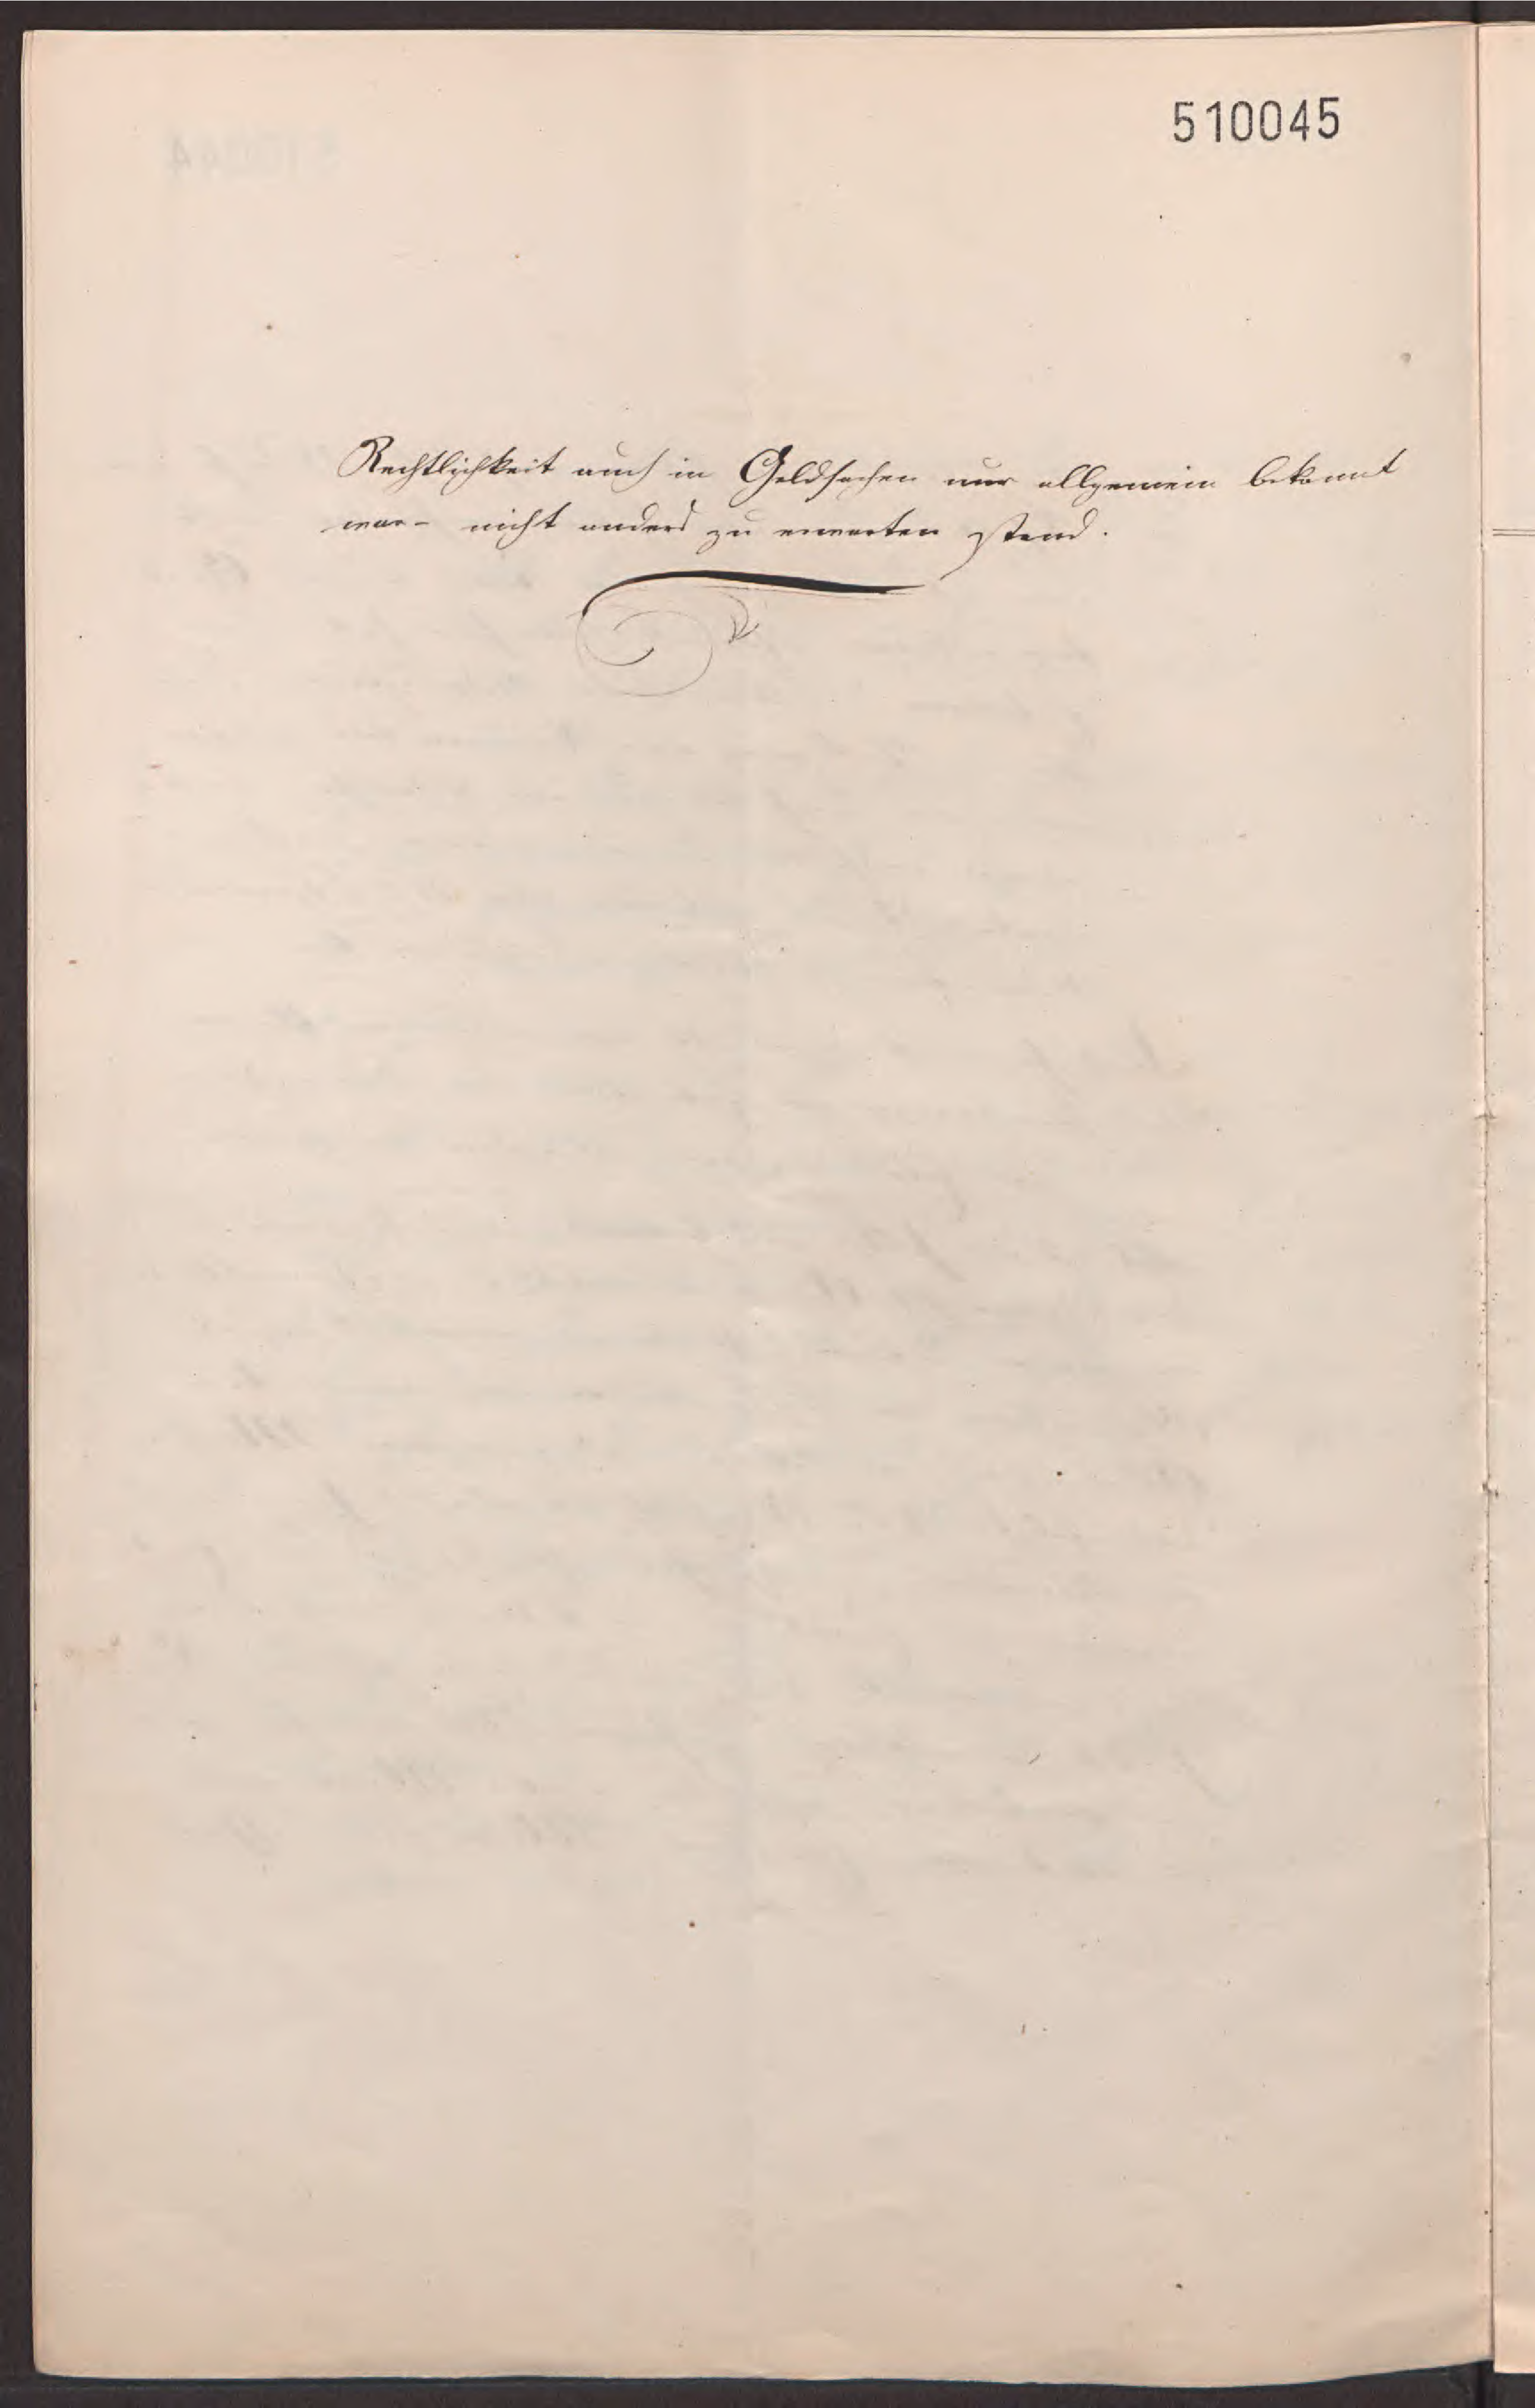 510045
Rechtlichkeit auch in Geldsachen nur allgemein bekannt
war – nicht anders zu erwarten stand.